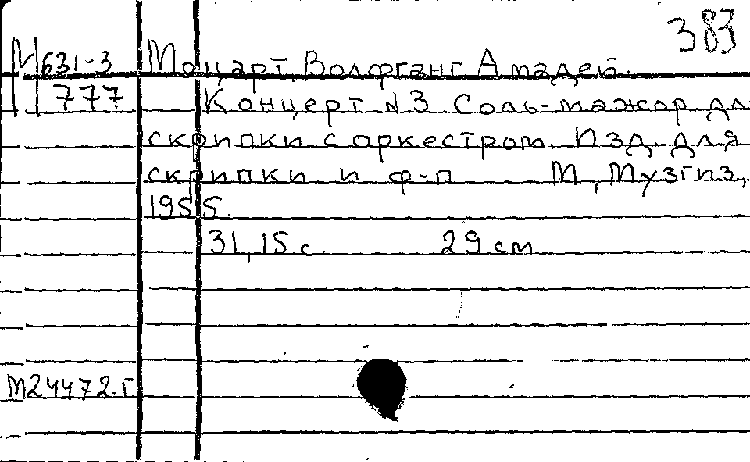 383
М 631-3 Моцарт, Вольфганг Амадей.
777 Концерт N3 Соль-мажор дл
скрипки с оркестром Изд. для
скрипки и ф-п М, Музгиз,
1955.
31, 15 с 29 см
М24472.г